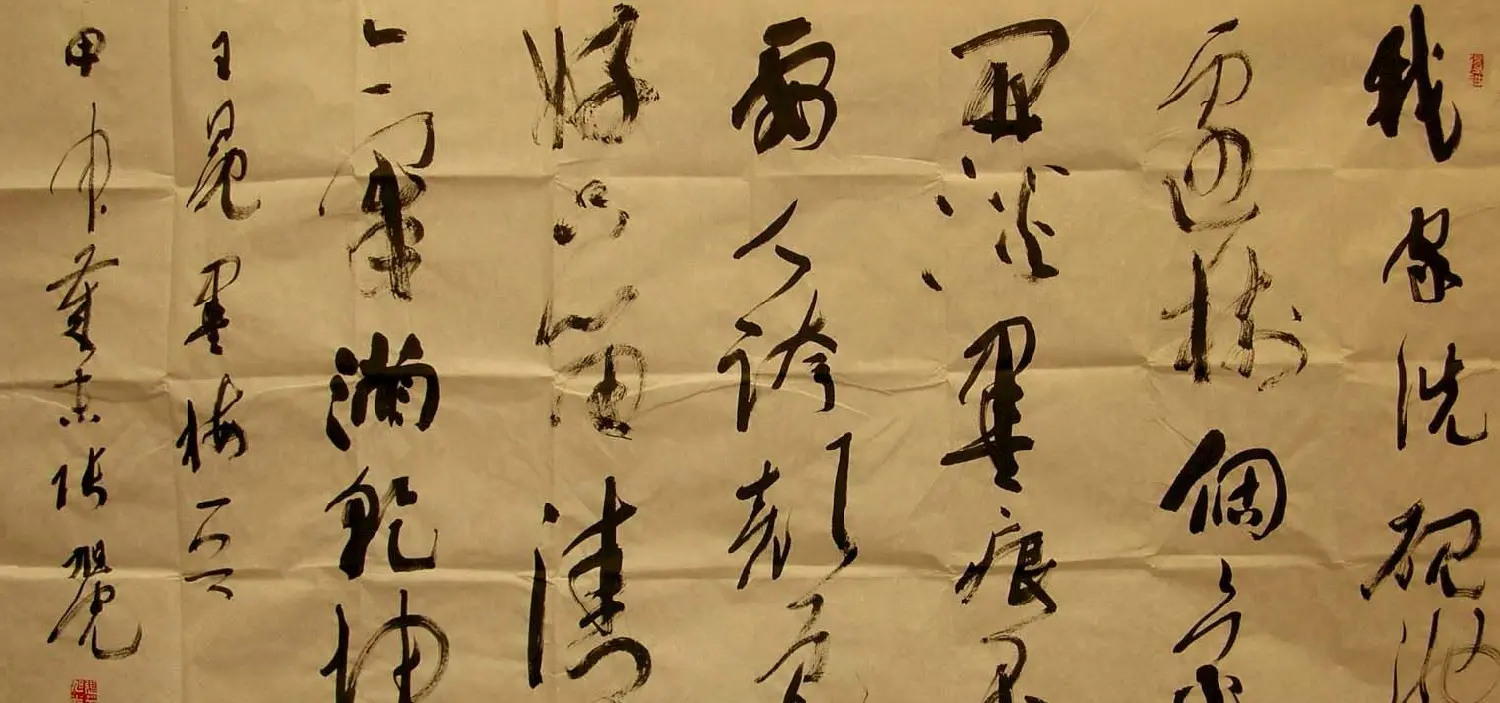 我家洗硯池
邊樹個个花
開淡墨痕不
要人誇顏色
好只留清
氣滿乾坤
王冕墨梅一首
甲申